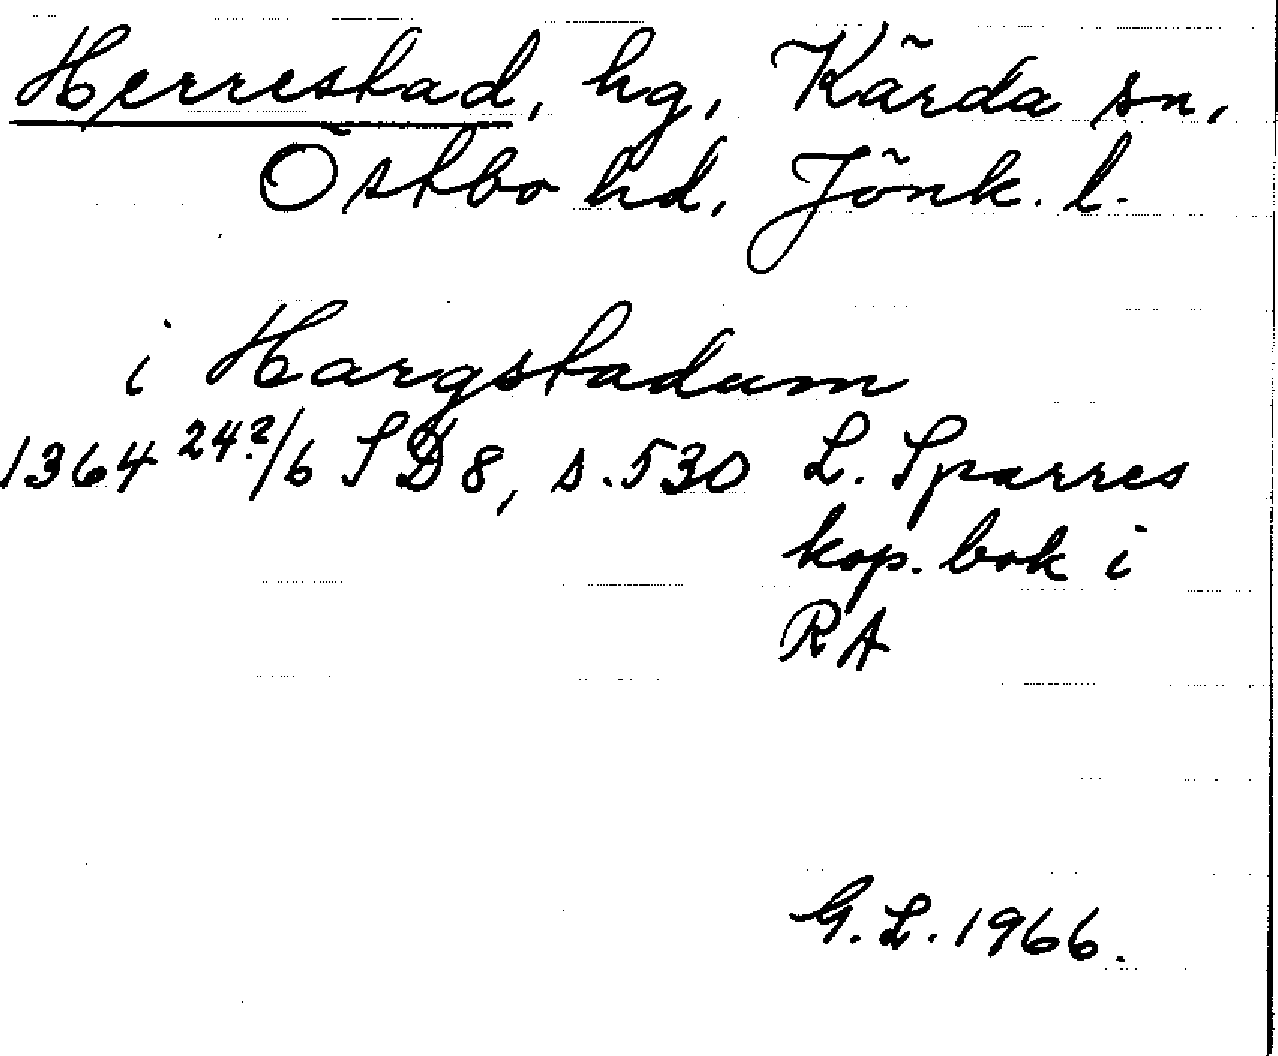 Herrestad, hg, Kärda sn,
Östbo hd, Jönk. l.
i Hargstadum
1364 24?/6 SD 8, s. 530 L. Sparres
kop. bok i
RA
G. L. 1966.